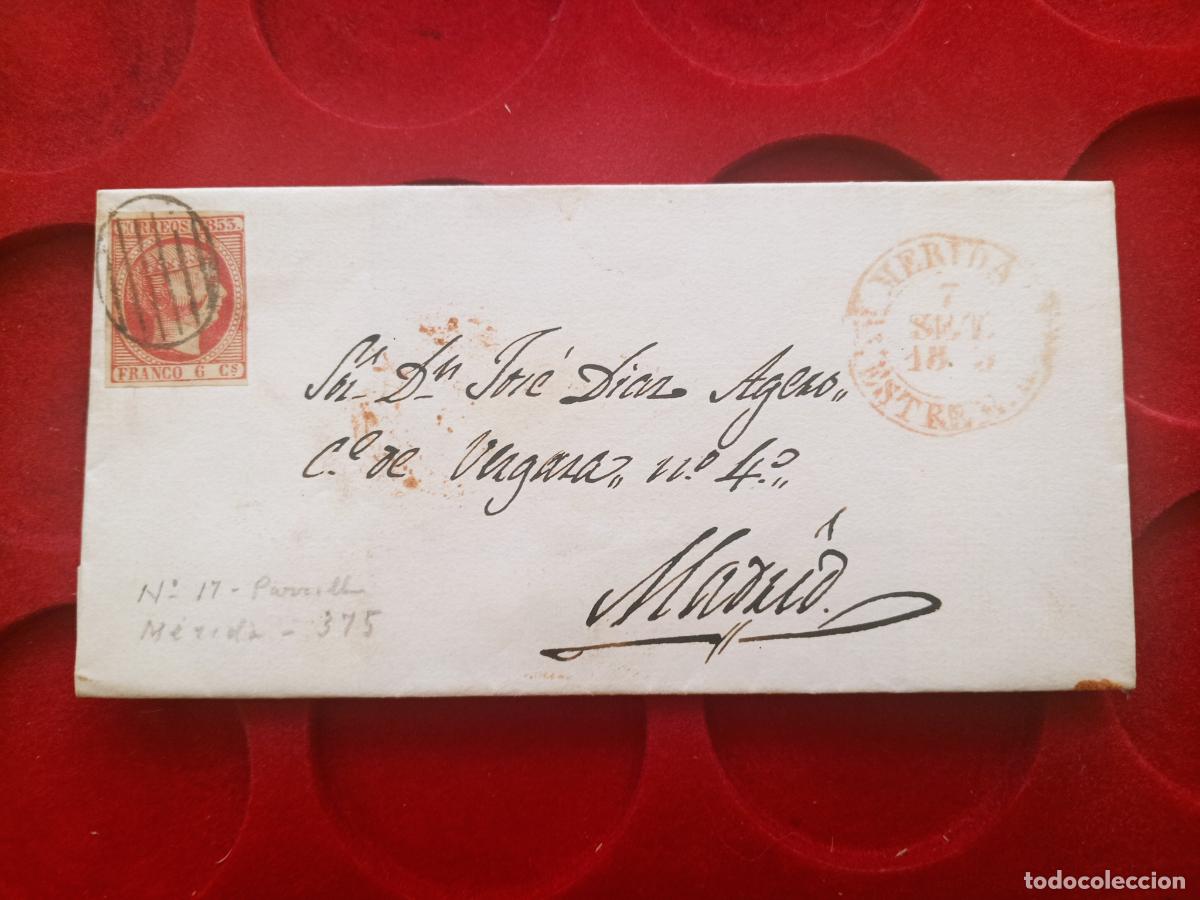 CORREOS 1853.
FRANCO 6 Cs
MERIDA
7
SET.
18
ESTRE
Sor. Dn. José Diaz Agero,,
C.e de Vergara,, n.o 4.o,,
Madrid.
Nº 17 - Parrilla
Mérida - 375
todocoleccion